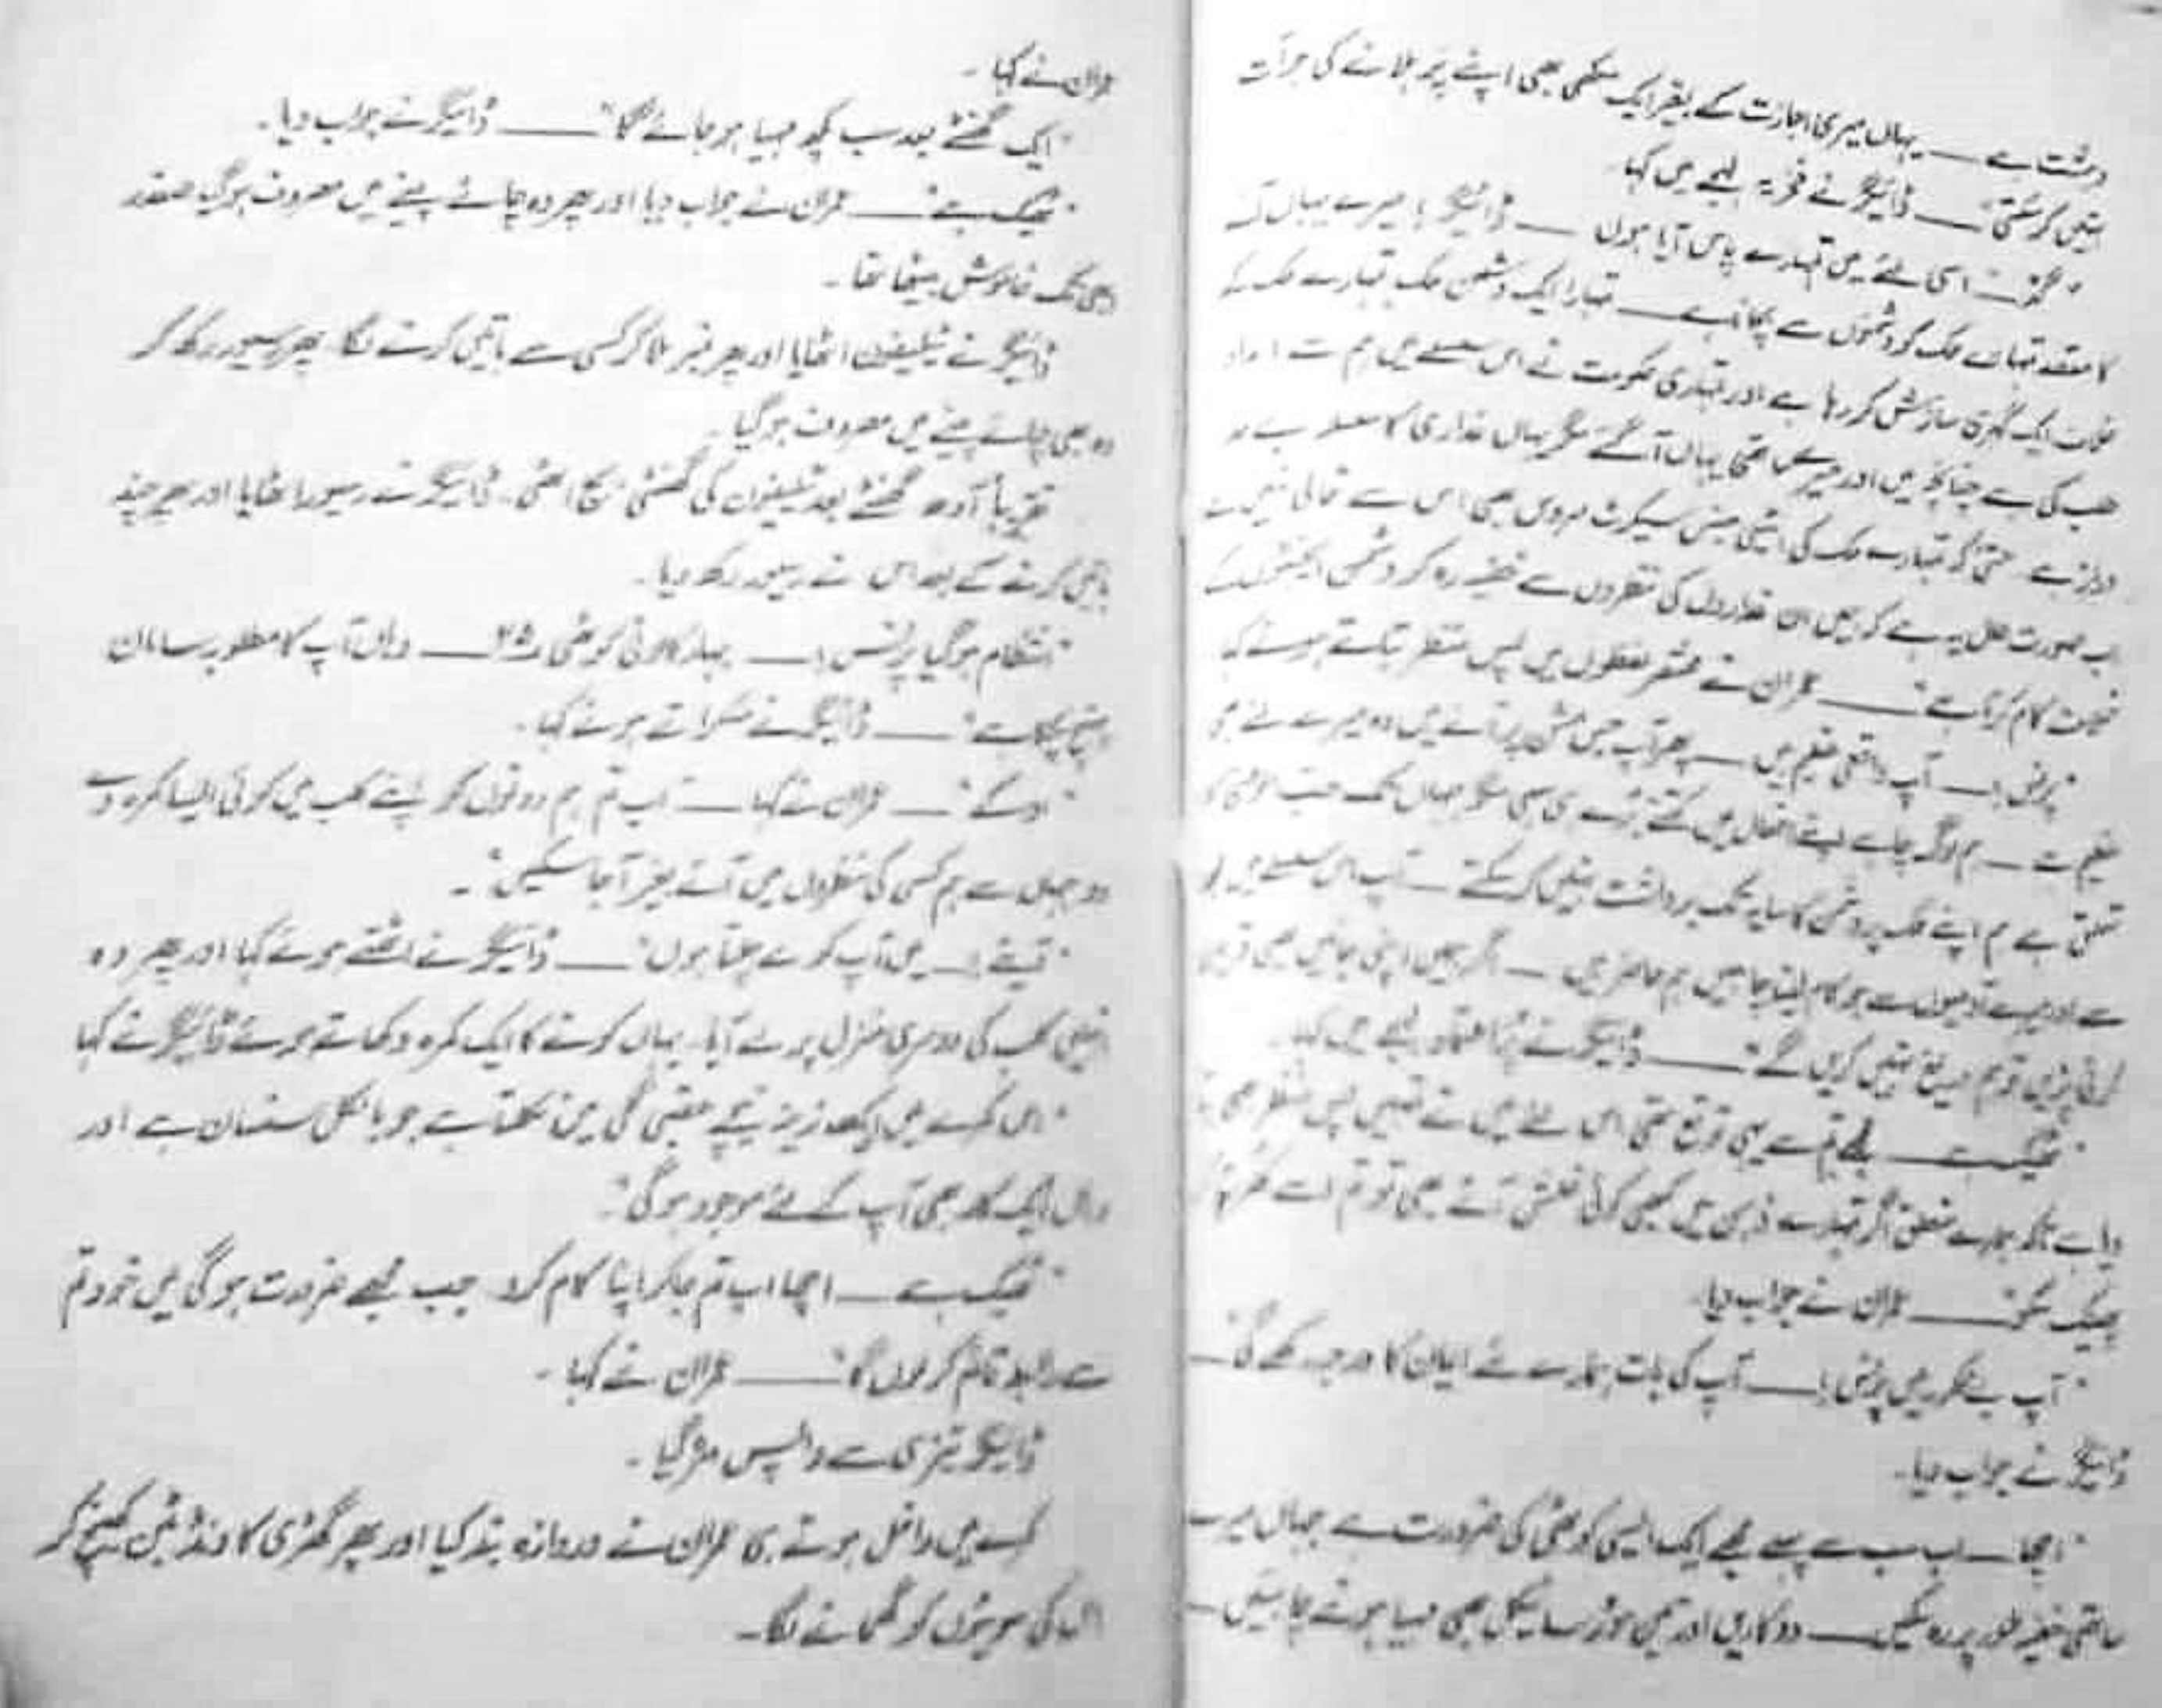 دہشت ہے ــــ یہاں میری اجازت کے بغیر ایک مکھی بھی اپنے پر ہلانے کی جرأت
نہیں کر سکتی" ــــ ٹائیگر نے فخریہ لہجے میں کہا۔
"گڈ ــ اسی لئے میں تمہارے پاس آیا ہوں ــــ ٹائیگر! میرے یہاں آنے
کا مقصد تمہارے ملک کو دشمنوں سے بچانا ہے ــــ تمہارا ایک دشمن ملک تمہارے ملک کے
خلاف ایک گہری سازش کر رہا ہے اور تمہاری حکومت نے اس سلسلے میں ہم سے امداد
طلب کی ہے چنانچہ میں اور میرے ساتھی یہاں آ گئے مگر یہاں غداری کا سلسلہ بے حد
دراز ہے حتیٰ کہ تمہارے ملک کی انٹیلی جنس سیکرٹ سروس بھی اس سے خالی نہیں ہے
اب صورت حال یہ ہے کہ ہمیں ان غداروں کی نظروں سے خفیہ رہ کر دشمن ایجنٹوں کے
خلاف کام کرنا ہے" ــــ عمران نے مختصر لفظوں میں پس منظر بتاتے ہوئے کہا۔
"پرنس! ــــ آپ واقعی عظیم ہیں ــــ پھر آپ جس مشن پر آئے ہیں وہ میرے لئے بھی
عظیم ہے ــــ ہم لوگ چاہے اپنے افعال میں کتنے بُرے ہی سہی مگر جہاں تک حب الوطنی کا
تعلق ہے ہم اپنے ملک پر دشمن کا سایہ تک برداشت نہیں کر سکتے ــــ آپ اس سلسلے میں مجھ
سے اور میرے آدمیوں سے جو کام لینا چاہیں ہم حاضر ہیں ــــ اگر ہمیں اپنی جانیں بھی قربان
کرنی پڑیں تو ہم دریغ نہیں کریں گے" ــــ ٹائیگر نے پُراعتماد لہجے میں کہا۔
"ٹھیک ہے ــــ مجھے تم سے یہی توقع تھی اس لئے میں نے تمہیں پس منظر بھی بتا
دیا ہے تاکہ ہمارے متعلق اگر تمہارے ذہن میں کبھی کوئی خلش آئے بھی تو تم اسے
جھٹک سکو" ــــ عمران نے جواب دیا۔
"آپ بے فکر رہیں پرنس! ــــ آپ کی بات ہمارے لئے ایمان کا درجہ رکھے گی" ــــ
ٹائیگر نے جواب دیا۔
"اچھا ــــ اب سب سے پہلے مجھے ایک ایسی کوٹھی کی ضرورت ہے جہاں میرے
ساتھی خفیہ طور پر رہ سکیں ــــ دو کاریں اور تین موٹر سائیکل بھی مہیا ہونے چاہئیں" ــــ
عمران نے کہا۔
"ایک گھنٹے بعد سب کچھ مہیا ہو جائے گا" ــــ ٹائیگر نے جواب دیا۔
"ٹھیک ہے" ــــ عمران نے جواب دیا اور پھر وہ چائے پینے میں مصروف ہو گیا۔ صفدر
ابھی تک خاموش بیٹھا تھا۔
ٹائیگر نے ٹیلیفون اٹھایا اور پھر نمبر ملا کر کسی سے باتیں کرنے لگا۔ پھر رسیور رکھ کر
وہ بھی چائے پینے میں مصروف ہو گیا۔
تقریباً آدھ گھنٹے بعد ٹیلیفون کی گھنٹی بج اٹھی۔ ٹائیگر نے رسیور اٹھایا اور پھر چند
باتیں کرنے کے بعد اس نے رسیور رکھ دیا۔
"انتظام ہو گیا پرنس! ــــ بہار کالونی کوٹھی ــــ وہاں آپ کا مطلوبہ سامان
پہنچ چکا ہے" ــــ ٹائیگر نے مسکراتے ہوئے کہا۔
"اوکے" ــــ عمران نے کہا ــــ "اب تم ہم دونوں کو اپنے کلب میں کوئی ایسا کمرہ دے
دو جہاں سے ہم کسی کی نظروں میں آئے بغیر آ جا سکیں"۔
"آئیے! ــــ میں آپ کو لے چلتا ہوں" ــــ ٹائیگر نے اٹھتے ہوئے کہا اور پھر وہ
انہیں کلب کی دوسری منزل پر لے آیا۔ یہاں کونے کا ایک کمرہ دکھاتے ہوئے ٹائیگر نے کہا
"اس کمرے میں ایک زینہ نیچے عقبی گلی میں نکلتا ہے جو بالکل سنسان ہے اور
وہاں ایک کار بھی آپ کے لئے موجود ہو گی"۔
"ٹھیک ہے ــــ اچھا اب تم جا کر اپنا کام کرو۔ جب مجھے ضرورت ہو گی میں خود تم
سے رابطہ قائم کر لوں گا" ــــ عمران نے کہا۔
ٹائیگر تیزی سے واپس مڑ گیا۔
کمرے میں داخل ہوتے ہی عمران نے دروازہ بند کیا اور پھر گھڑی کا ونڈ بٹن کھینچ کر
اس کی سوئیوں کو گھمانے لگا۔